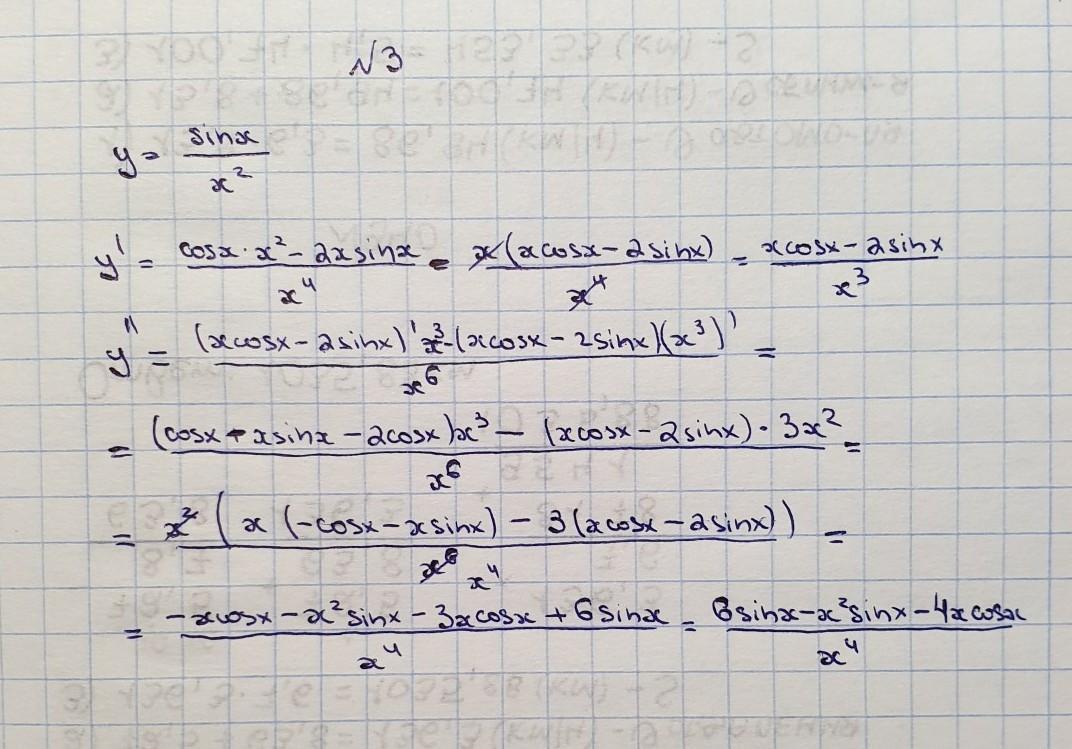 №3
y = sinx / x²
y' = cosx·x² - 2xsinx / x⁴ = x(xcosx - 2sinx) / x⁴ = xcosx - 2sinx / x³
y'' = (xcosx - 2sinx)'x³-(xcosx - 2sinx)(x³)' / x⁶ =
= (cosx - xsinx - 2cosx)x³ - (xcosx - 2sinx)·3x² / x⁶ =
= x²(x(-cosx - xsinx) - 3(xcosx - 2sinx)) / x⁶ x⁴ =
= -xcosx - x²sinx - 3xcosx + 6sinx / x⁴ = 6sinx - x²sinx - 4xcosx / x⁴